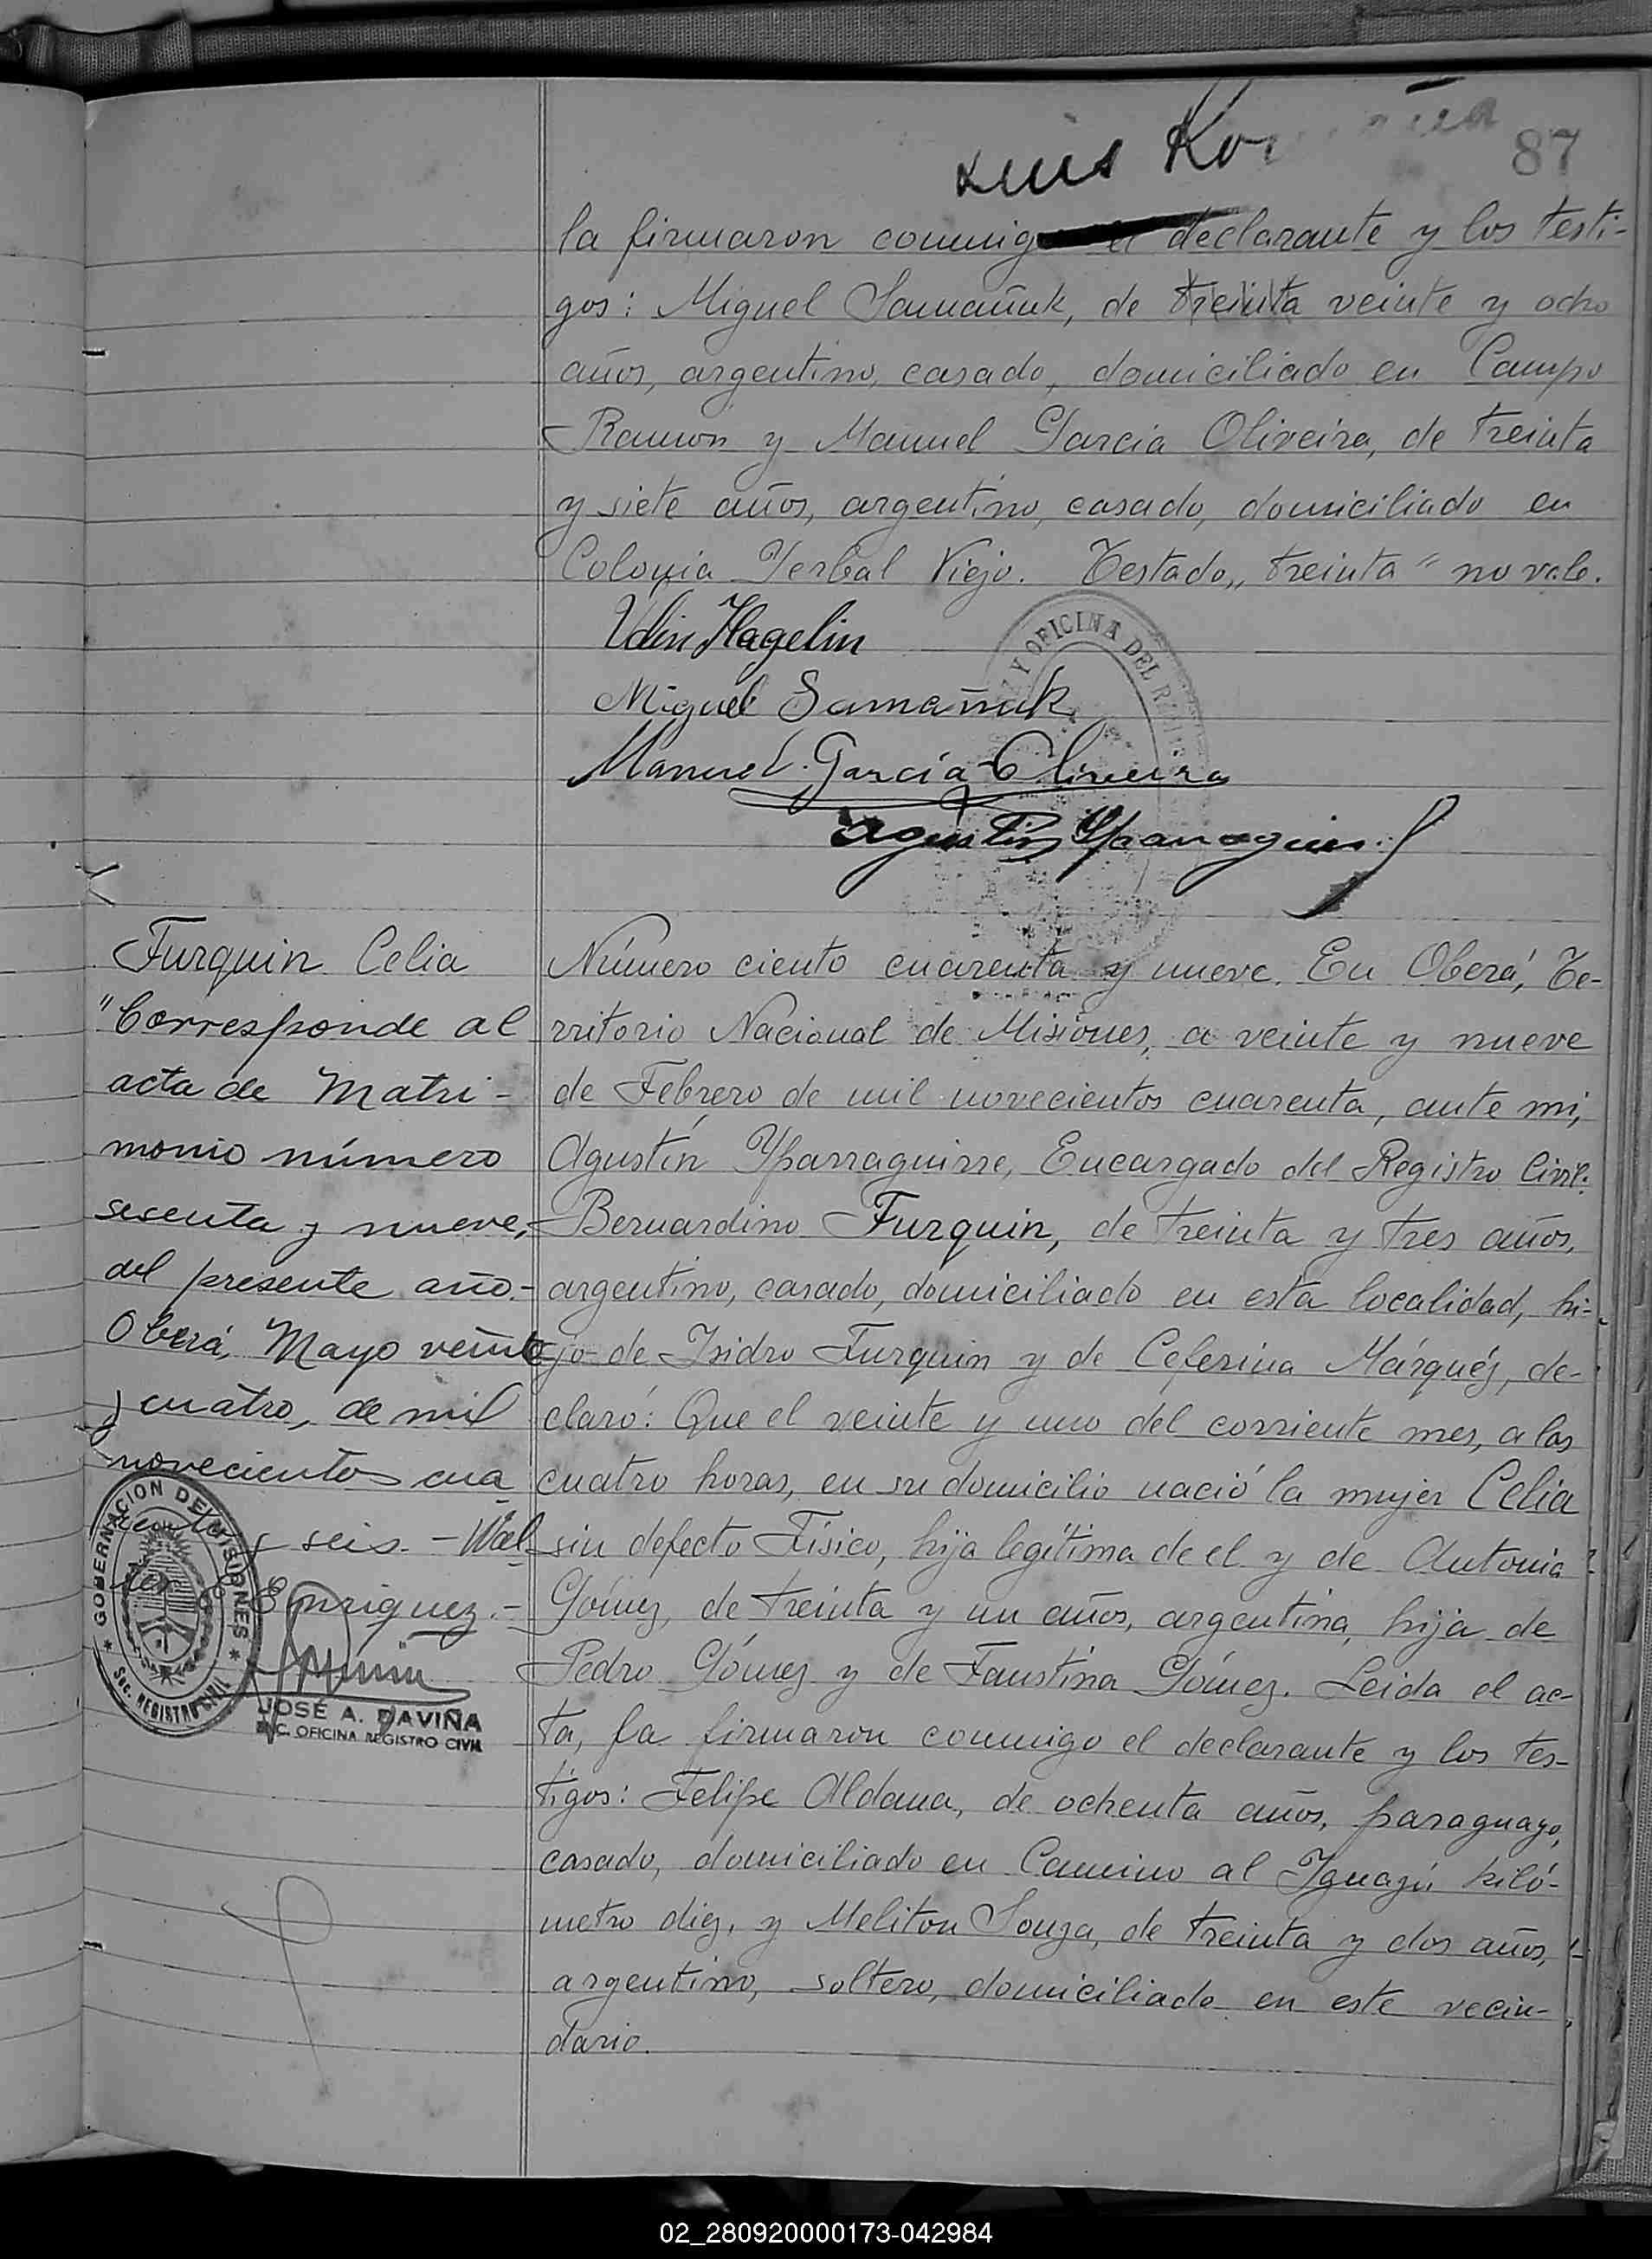 Luis
87
la firmaron conmigo el declarante y los testi-
gos: Miguel Samañuk, de treinta veinte y ocho
años, argentino, casado, domiciliado en Campo
Ramon y Manuel Garcia Oliveira, de treinta
y siete años, argentino, casado, domiciliado en
Colonia Yerbal Viejo. Testado „treinta" no vale.
Hagelin
Miguel Samañuk
Manuel Garcia Oliveira
Agustin Yparraguirre
Y OFICINA DEL R
Furquin Celia
"Corresponde al
acta de Matri-
monio número
sesenta y nueve,
del presente año.-
Oberá, Mayo veinte
y cuatro, de mil
novecientos cua
renta y seis.- Wal
ter E Enriquez.-
GOBERNACION DE MISIONES
SEC. REGISTRO CIVIL
JOSÉ A. DAVIÑA
ENC. OFICINA REGISTRO CIVIL
Número ciento cuarenta y nueve. En Oberá, Te-
rritorio Nacional de Misiones, a veinte y nueve
de Febrero de mil novecientos cuarenta, ante mi,
Agustín Yparraguirre, Encargado del Registro Civil:
Bernardino Furquin, de treinta y tres años,
argentino, casado, domiciliado en esta localidad, hi-
jo de Isidro Furquin y de Ceferina Márquéz, de-
claró: Que el veinte y uno del corriente mes, a las
cuatro horas, en su domicilio nació la mujer Celia
sin defecto Físico, hija legítima de el y de Antonia
Gómez, de treinta y un años, argentina, hija de
Pedro Gómez y de Faustina Gómez. Leida el ac-
ta, la firmaron conmigo el declarante y los tes-
tigos: Felipe Aldana, de ochenta años, paraguayo,
casado, domiciliado en Camino al Yguazú kiló-
metro diez, y Meliton Souza, de treinta y dos años,
argentino, soltero, domiciliado en este vecin-
dario.
02_280920000173-042984